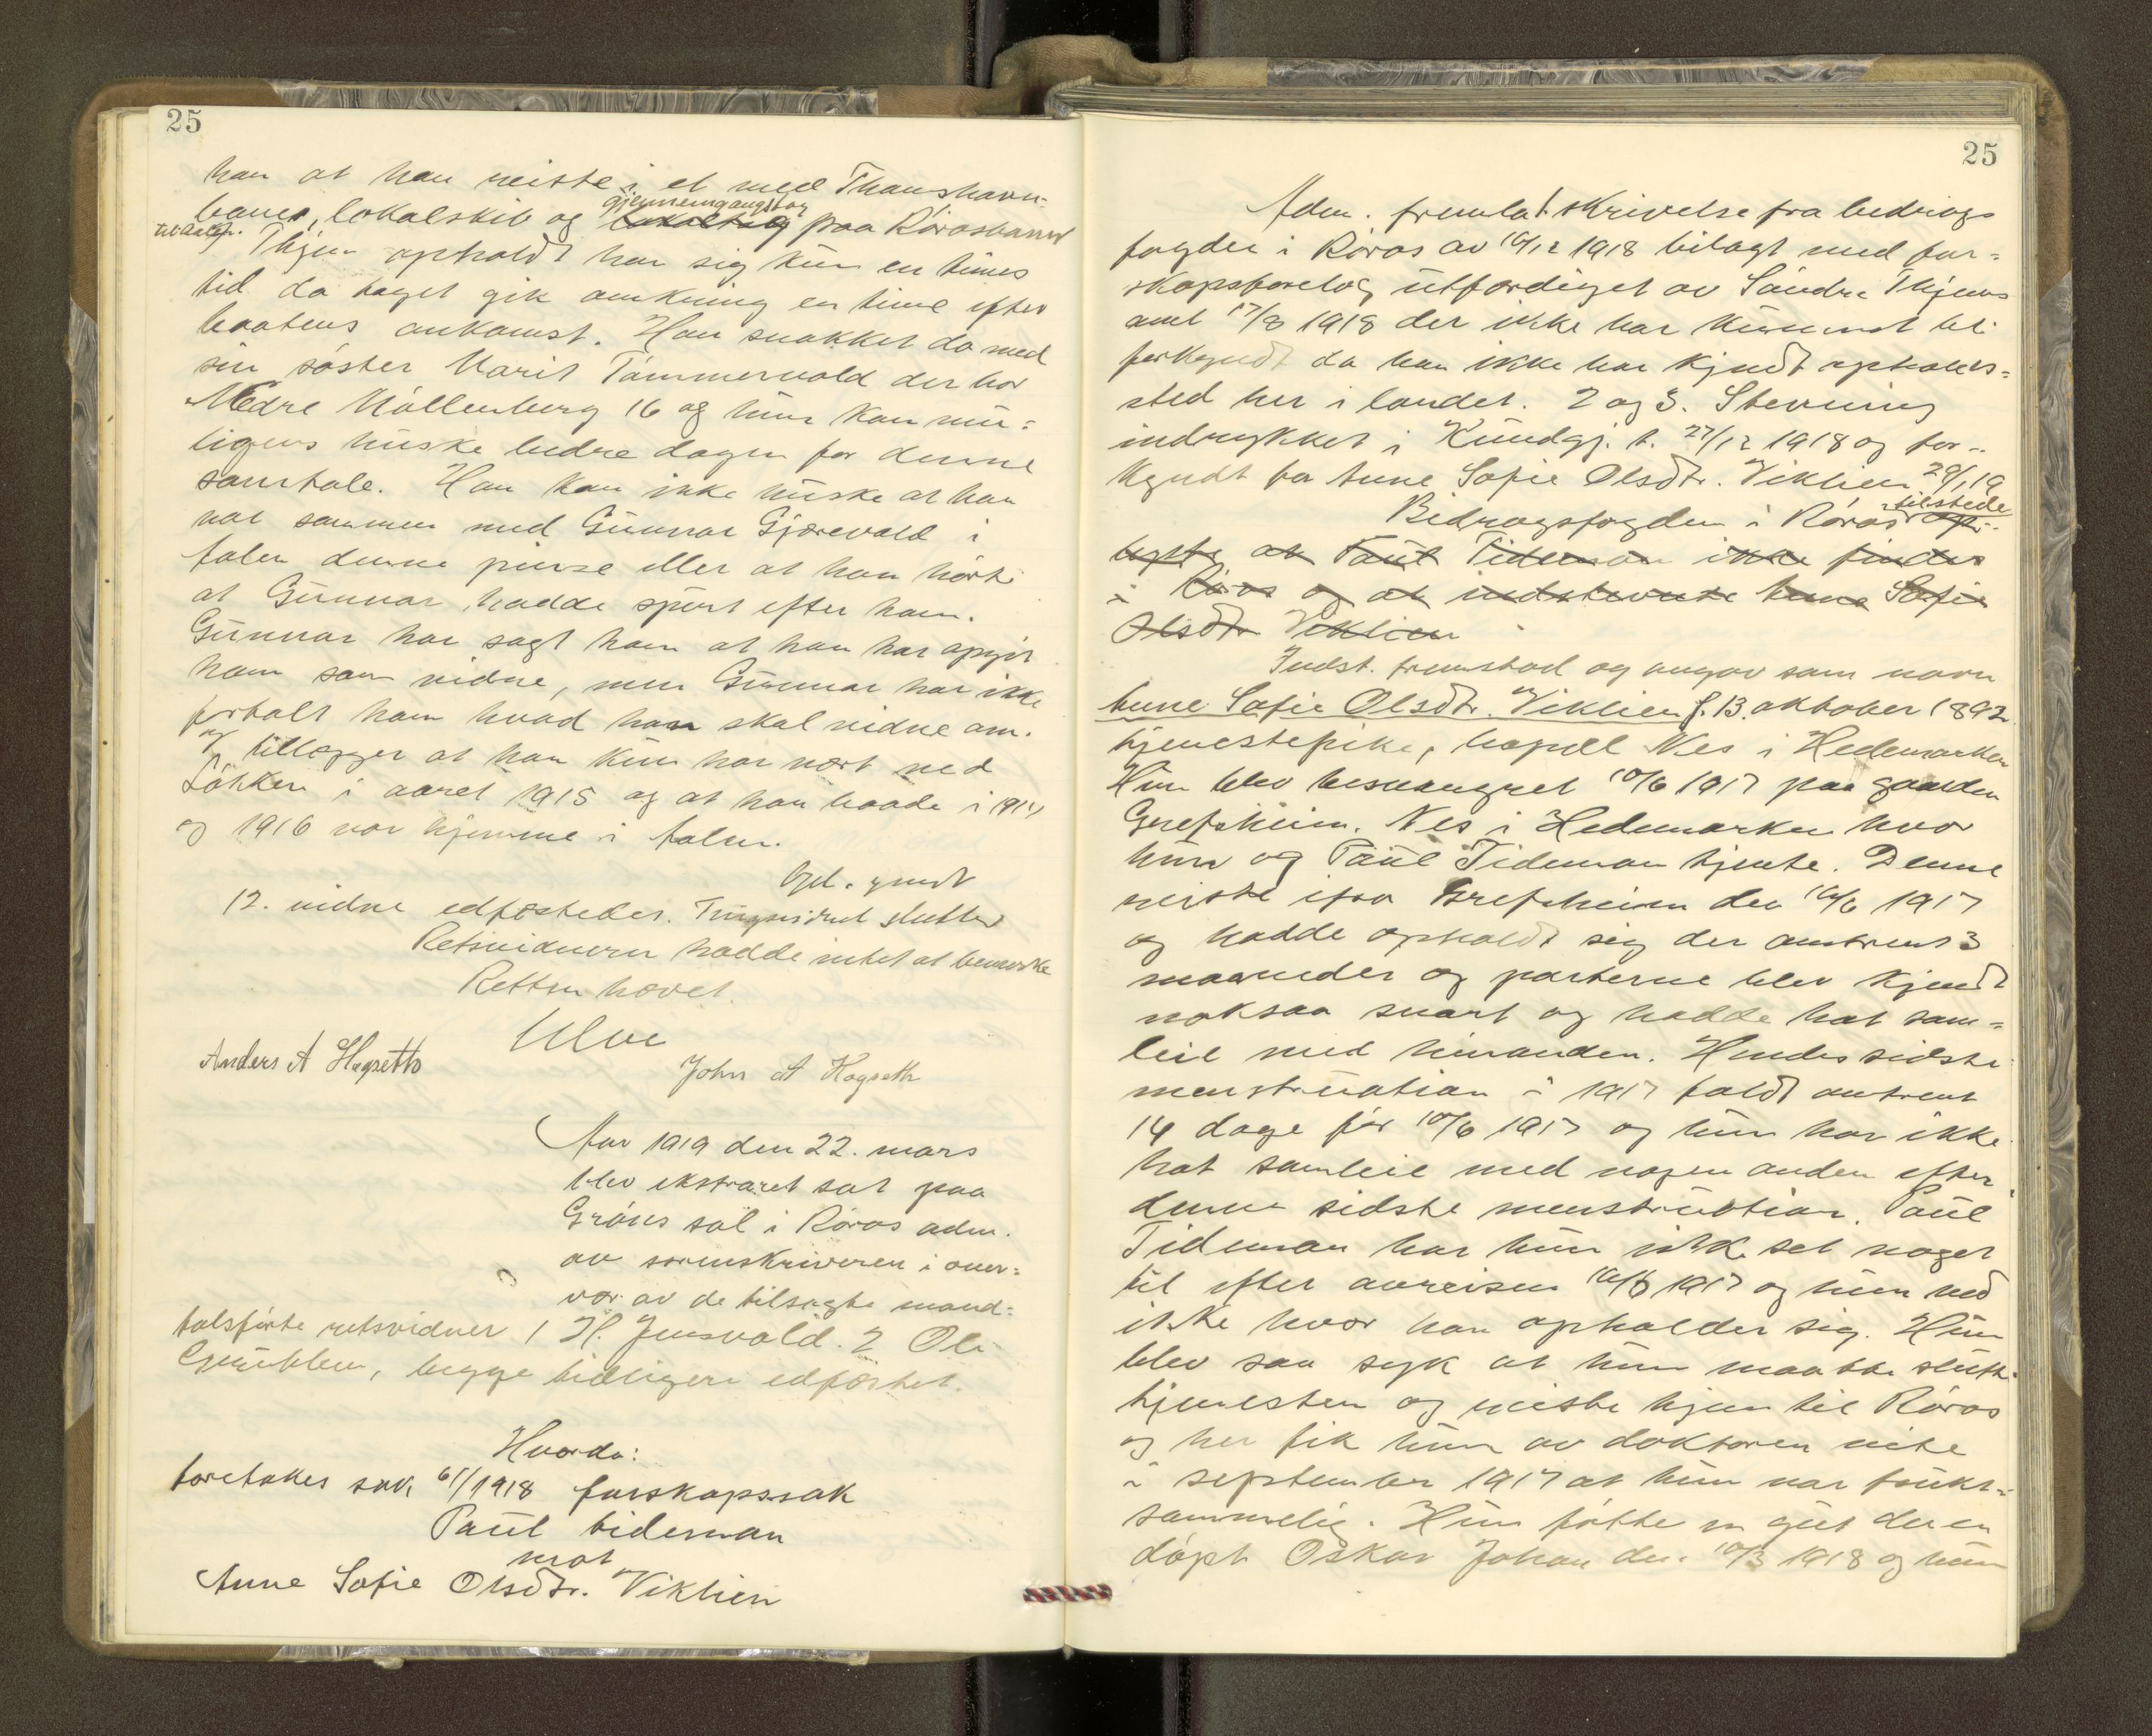 25
han at han reiste i et med Thamshavn-
banen, lokalskib og lokaltog gjennemgangstog paa Rörosbanen
til Aalen. Thjem opholdt han sig kun en times
tid da toget gik omkring en time efter
baatens ankomst. Han snakket da med
sin söster Marit Tömmervold der bor
Nedre Möllenberg 16 og hun kan mu-
ligens huske bedre dagen for denne
samtale. Han kan ikke huske at han
var sammen med Gunnar Gjærevold i
Aalen denne pinse eller at han hörte
at Gunnar hadde spurt efter ham.
Gunnar har sagt ham at han har opgit
ham som vidne, men Gunnar har ikke
fortalt ham hvad han skal vidne om.
tillægger at han kun har vært ved
Lökken i aaret 1915 og at han baade i 1914
og 1916 var hjemme i Aalen.
12. vidne edfæstedes. Tingvidnet sluttet
Retsvidnerne hadde intet at bemerke
Retten hævet.
Ulve
Anders A Hagseth
John A Hagseth
Aar 1919 den 22. mars
blev ekstraret sat paa
Gröns sal i Röros adm.
av sorenskriveren i over-
vær av de tilsagte mand-
talsförte retsvidner 1 H. Jensvold. 2 Ole
begge tidligere edfæstet.
Hvorda:
foretokes sak 61/1918 farskapssak
Paul Tideman
mot
Anne Sofie Olsdtr. Viklien
25
Adm. fremla skrivelse fra bidrags
fogden i Röros av 10/12 1918 bilagt med far-
skapsforelæg utfærdiget av Söndre Thjems
amt 17/8 1918 der ikke har kunnet bli
forkyndt da han ikke har kjendt opholds-
sted her i landet. 2 og 3. Stevning
indrykket i Kundgj. t. 27/12 1918 og for-
kyndt for Anne Sofie Olsdtr. Viklien 29/1 19
Bidragsfogden i Röros tilstede op-
lyste at Paul Tideman ikke findes
i Röros og at indstevnte Anne Sofie
Olsdtr Viklien
Indst. fremstod og angav som navn
Anne Sofie Olsdtr. Viklien f. 13. oktober 1892
tjenestepike, bopæl Nes i Hedemarken
Hun blev besvangret 10/6 1917 paa gaarden
Grefsheim. Nes i Hedemarken hvor
hun og Paul Tideman tjente. Denne
reiste ifra Grefsheim den 16/6 1917
og hadde opholdt sig der omtrent 3
maaneder og parterne blev kjendt
noksaa snart og hadde hat sam-
leie med hinanden. Hendes sidste
menstruation i 1917 faldt omtrent
14 dage för 10/6 1917 og hun har ikke
hat samleie med nogen anden efter
denne sidste menstruation. Paul
Tideman har hun ikke set noget
til efter avreisen 16/6 1917 og hun ved
ikke hvor han opholder sig. Hun
blev saa syk at hun maatte slutte
tjenesten og reiste hjem til Röros
og her fik hun av doktoren vite
i september 1917 at hun var frukt-
sommelig. Hun fötte en gut der er
döpt Oskar Johan den 10/3 1918 og hun